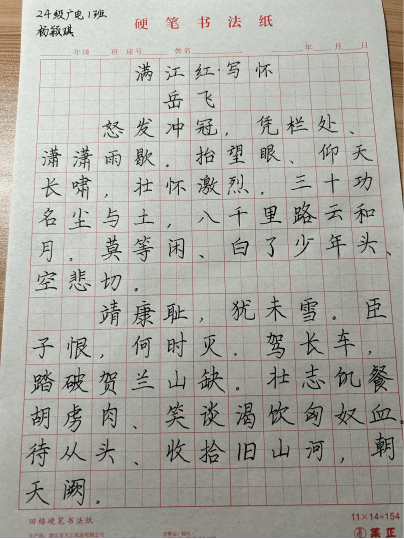 24级广电1班
杨颖琪
硬笔书法纸
年级 班 座号 姓名 年 月 日
满江红·写怀
岳飞
怒发冲冠，凭栏处、
潇潇雨歇。抬望眼、仰天
长啸，壮怀激烈。三十功
名尘与土，八千里路云和
月。莫等闲、白了少年头、
空悲切。
靖康耻，犹未雪。臣
子恨，何时灭。驾长车，
踏破贺兰山缺。壮志饥餐
胡虏肉、笑谈渴饮匈奴血。
待从头、收拾旧山河，朝
天阙。
田格硬笔书法纸
11×14=154